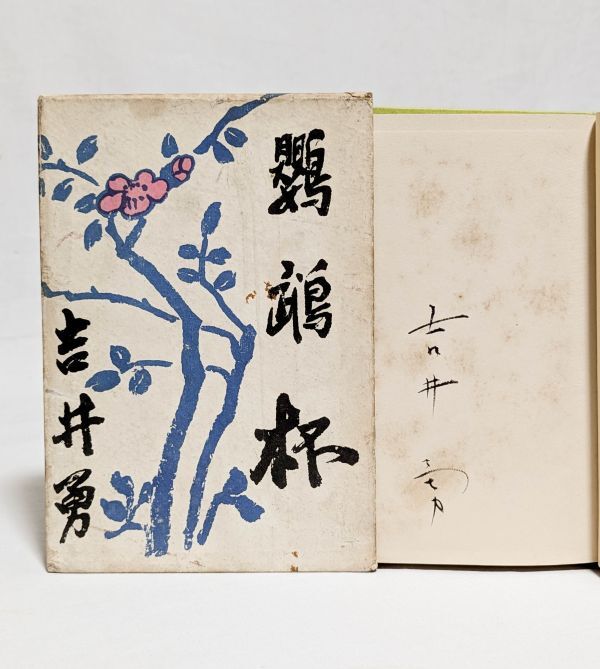 鸚鵡杯
吉井勇
吉井勇